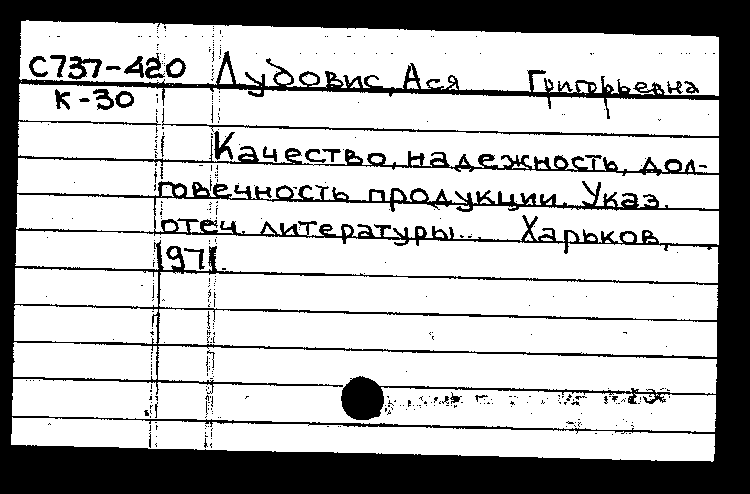 С737-420 Лудовис, Ася Григорьевна
К-30
Качество, надежность, дол-
говечность продукции. Указ.
отеч. литературы... Харьков,
1971.